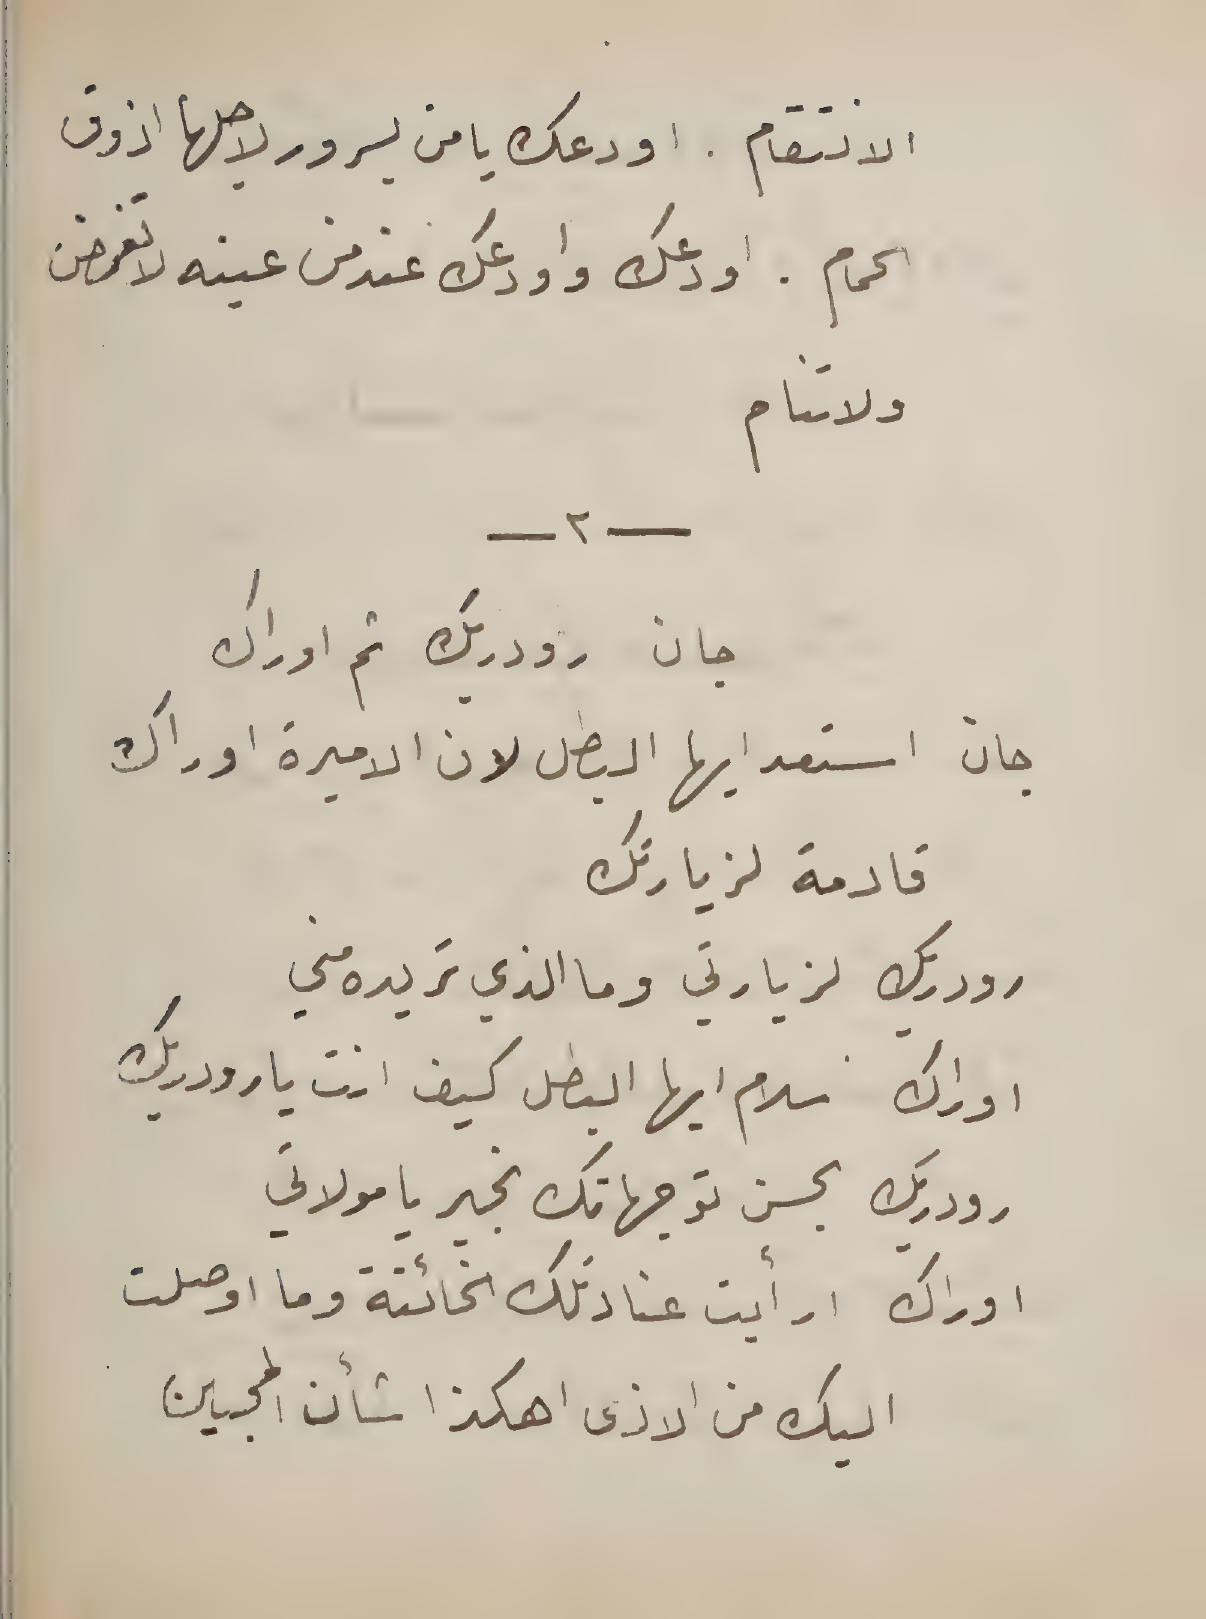 الانتقام . اودعك يا من بسرور لاجلها اذوق
الحمام . اودعك واودعك عند من عينه لا تغمض
ولا تنام
— ٢ —
جان رودريك ثم اوراك
جان استعد ايها البطل لان الاميرة اوراك
قادمة لزيارتك
رودريك لزيارتي وما الذي تريده مني
اوراك سلام ايها البطل كيف انت يا رودريك
رودريك بحسن توجهاتك بخير يا مولاتي
اوراك ارأيت عناد تلك الخائنة وما اوصلت
اليك من الاذى اهكذا شأن المحبين